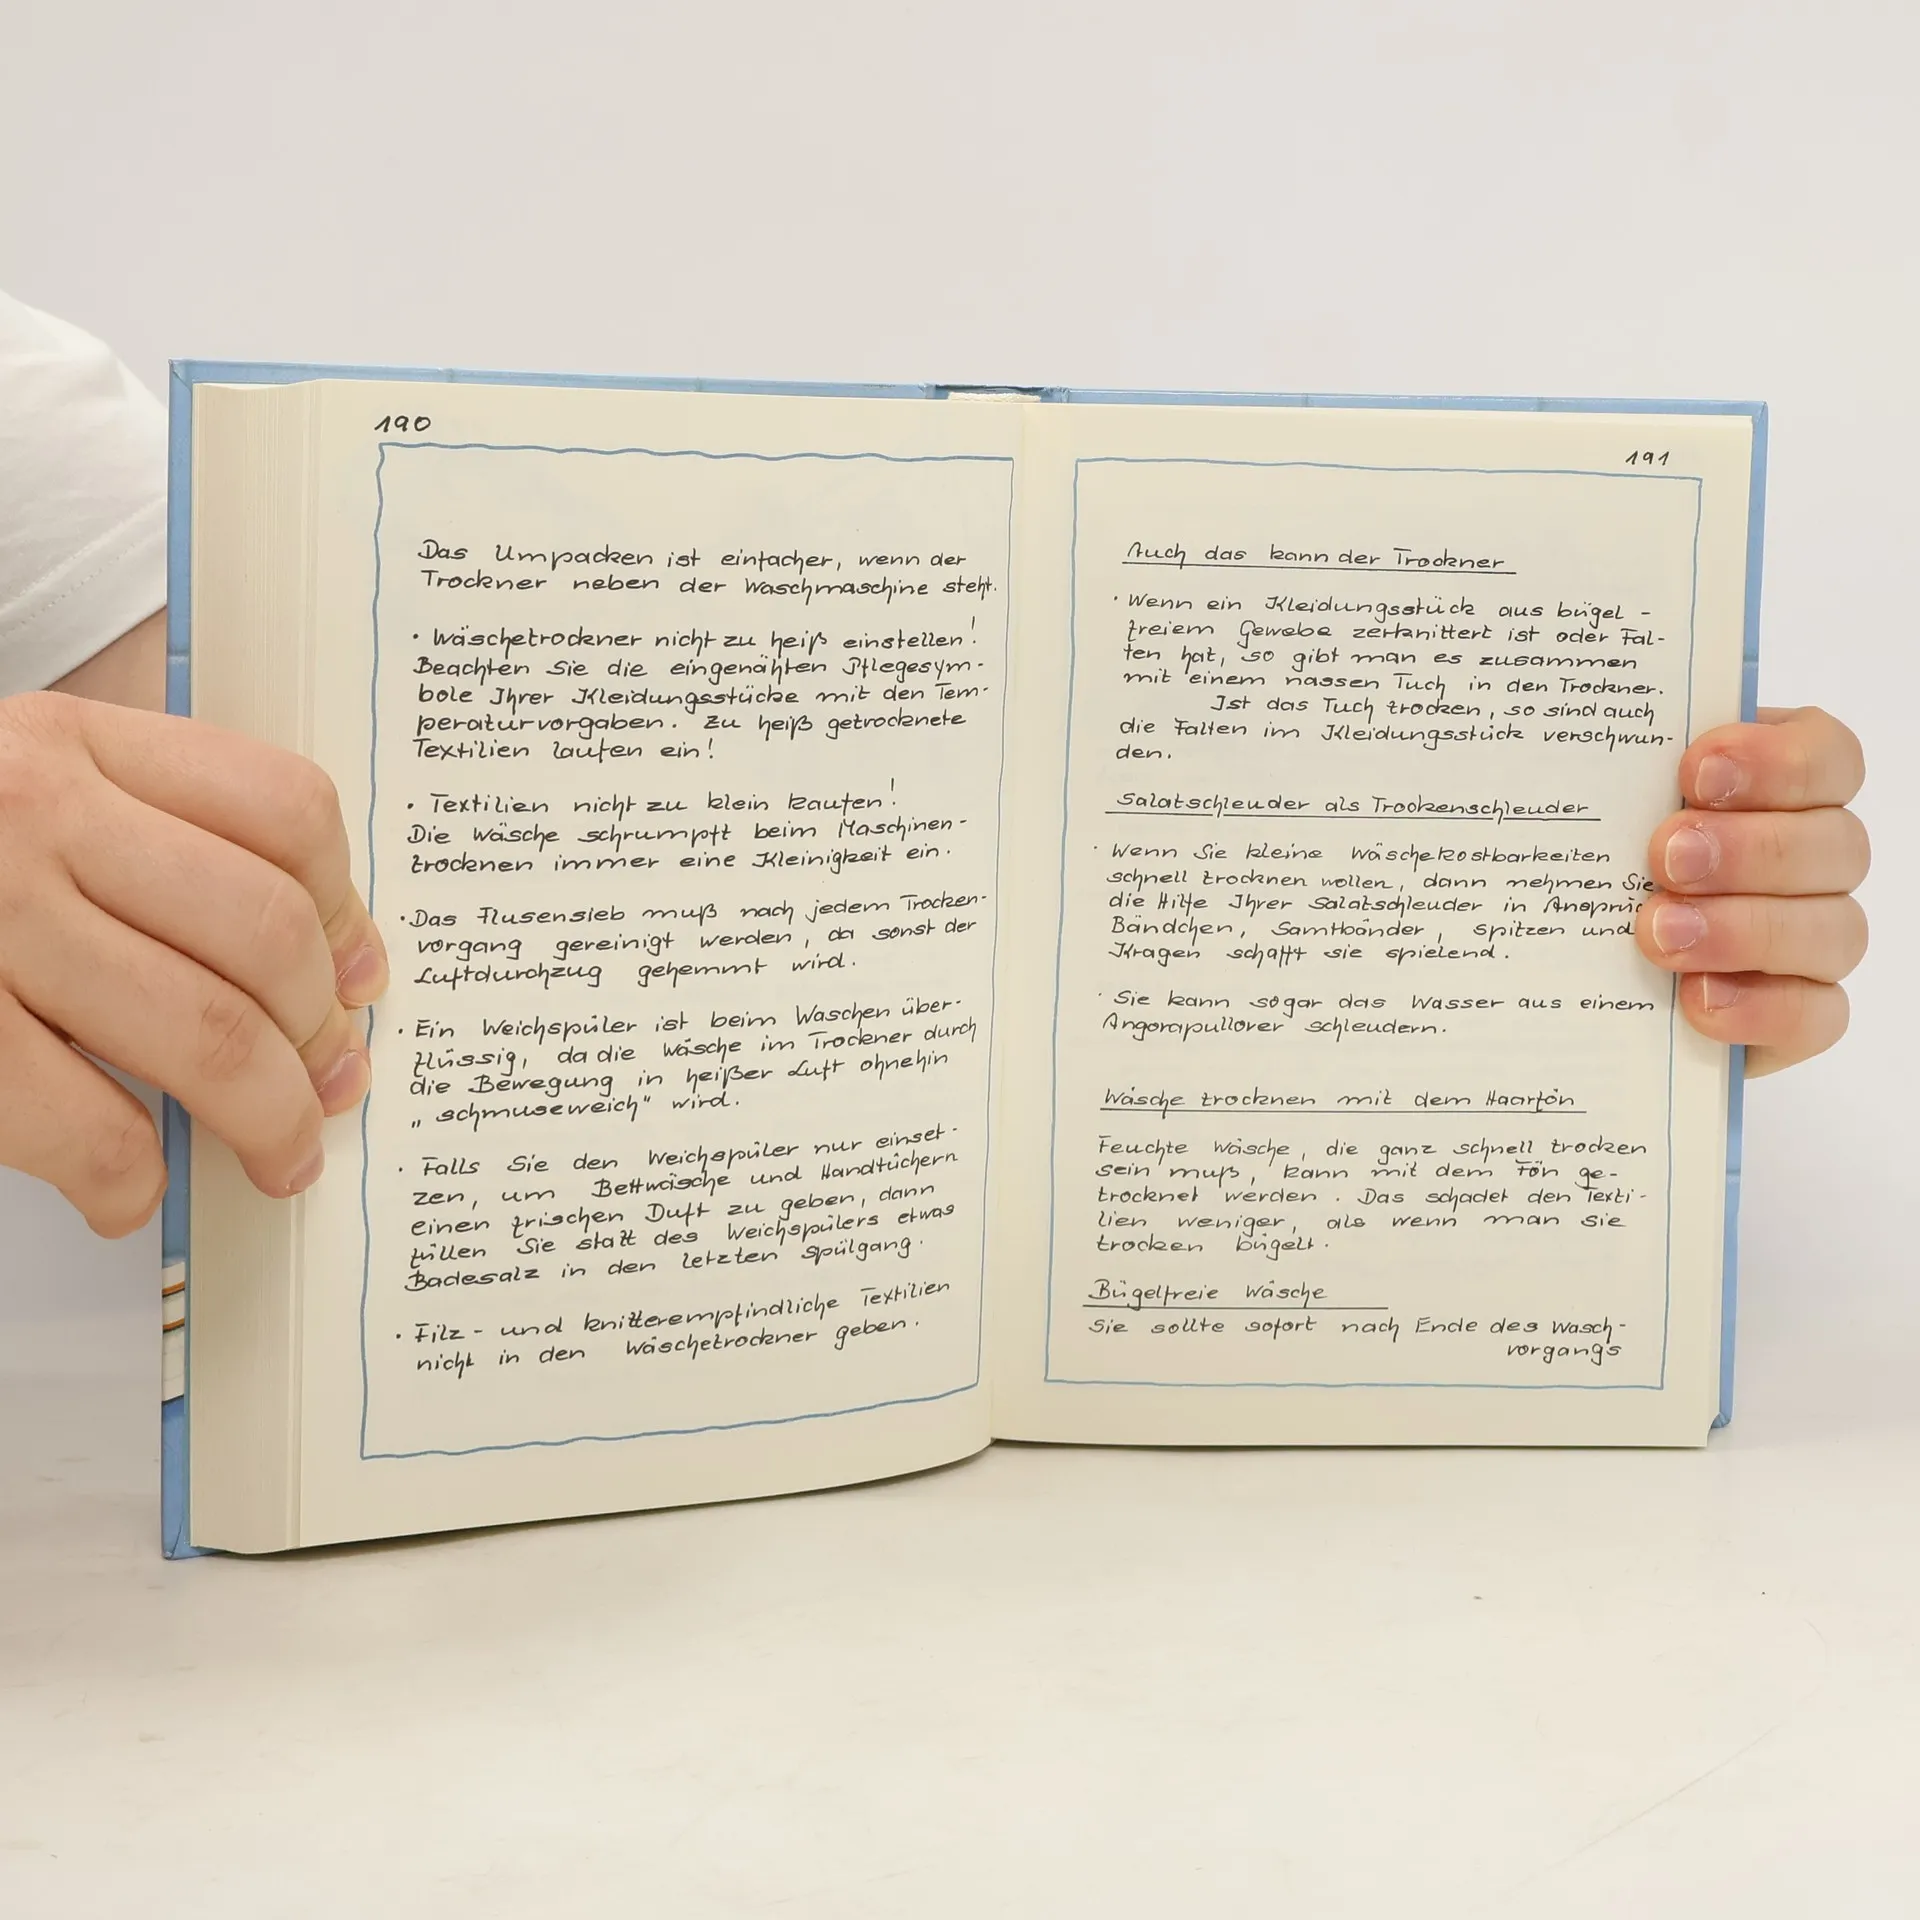 190
Das Umpacken ist einfacher, wenn der
Trockner neben der Waschmaschine steht.
• Wäschetrockner nicht zu heiß einstellen!
Beachten Sie die eingenähten Pflegesym-
bole Ihrer Kleidungsstücke mit den Tem-
peraturvorgaben. Zu heiß getrocknete
Textilien laufen ein!
• Textilien nicht zu klein kaufen!
Die Wäsche schrumpft beim Maschinen-
trocknen immer eine Kleinigkeit ein.
• Das Flusensieb muß nach jedem Trocken-
vorgang gereinigt werden, da sonst der
Luftdurchzug gehemmt wird.
• Ein Weichspüler ist beim Waschen über-
flüssig, da die Wäsche im Trockner durch
die Bewegung in heißer Luft ohnehin
„schmuseweich" wird.
• Falls Sie den Weichspüler nur einset-
zen, um Bettwäsche und Handtüchern
einen frischen Duft zu geben, dann
füllen Sie statt des Weichspülers etwas
Badesalz in den letzten Spülgang.
• Filz- und knitterempfindliche Textilien
nicht in den Wäschetrockner geben.
191
Auch das kann der Trockner
• Wenn ein Kleidungsstück aus bügel-
freiem Gewebe zerknittert ist oder Fal-
ten hat, so gibt man es zusammen
mit einem nassen Tuch in den Trockner.
Ist das Tuch trocken, so sind auch
die Falten im Kleidungsstück verschwun-
den.
Salatschleuder als Trockenschleuder
• Wenn Sie kleine Wäschekostbarkeiten
schnell trocknen wollen, dann nehmen Sie
die Hilfe Ihrer Salatschleuder in
Bändchen, Samtbänder, Spitzen und
Kragen schafft sie spielend.
• Sie kann sogar das Wasser aus einem
Angorapullover schleudern.
Wäsche trocknen mit dem Haarfön
Feuchte Wäsche, die ganz schnell trocken
sein muß, kann mit dem Fön ge-
trocknet werden. Das schadet den Texti-
lien weniger, als wenn man sie
trocken bügelt.
Bügelfreie Wäsche
Sie sollte sofort nach Ende des Wasch-
vorgangs